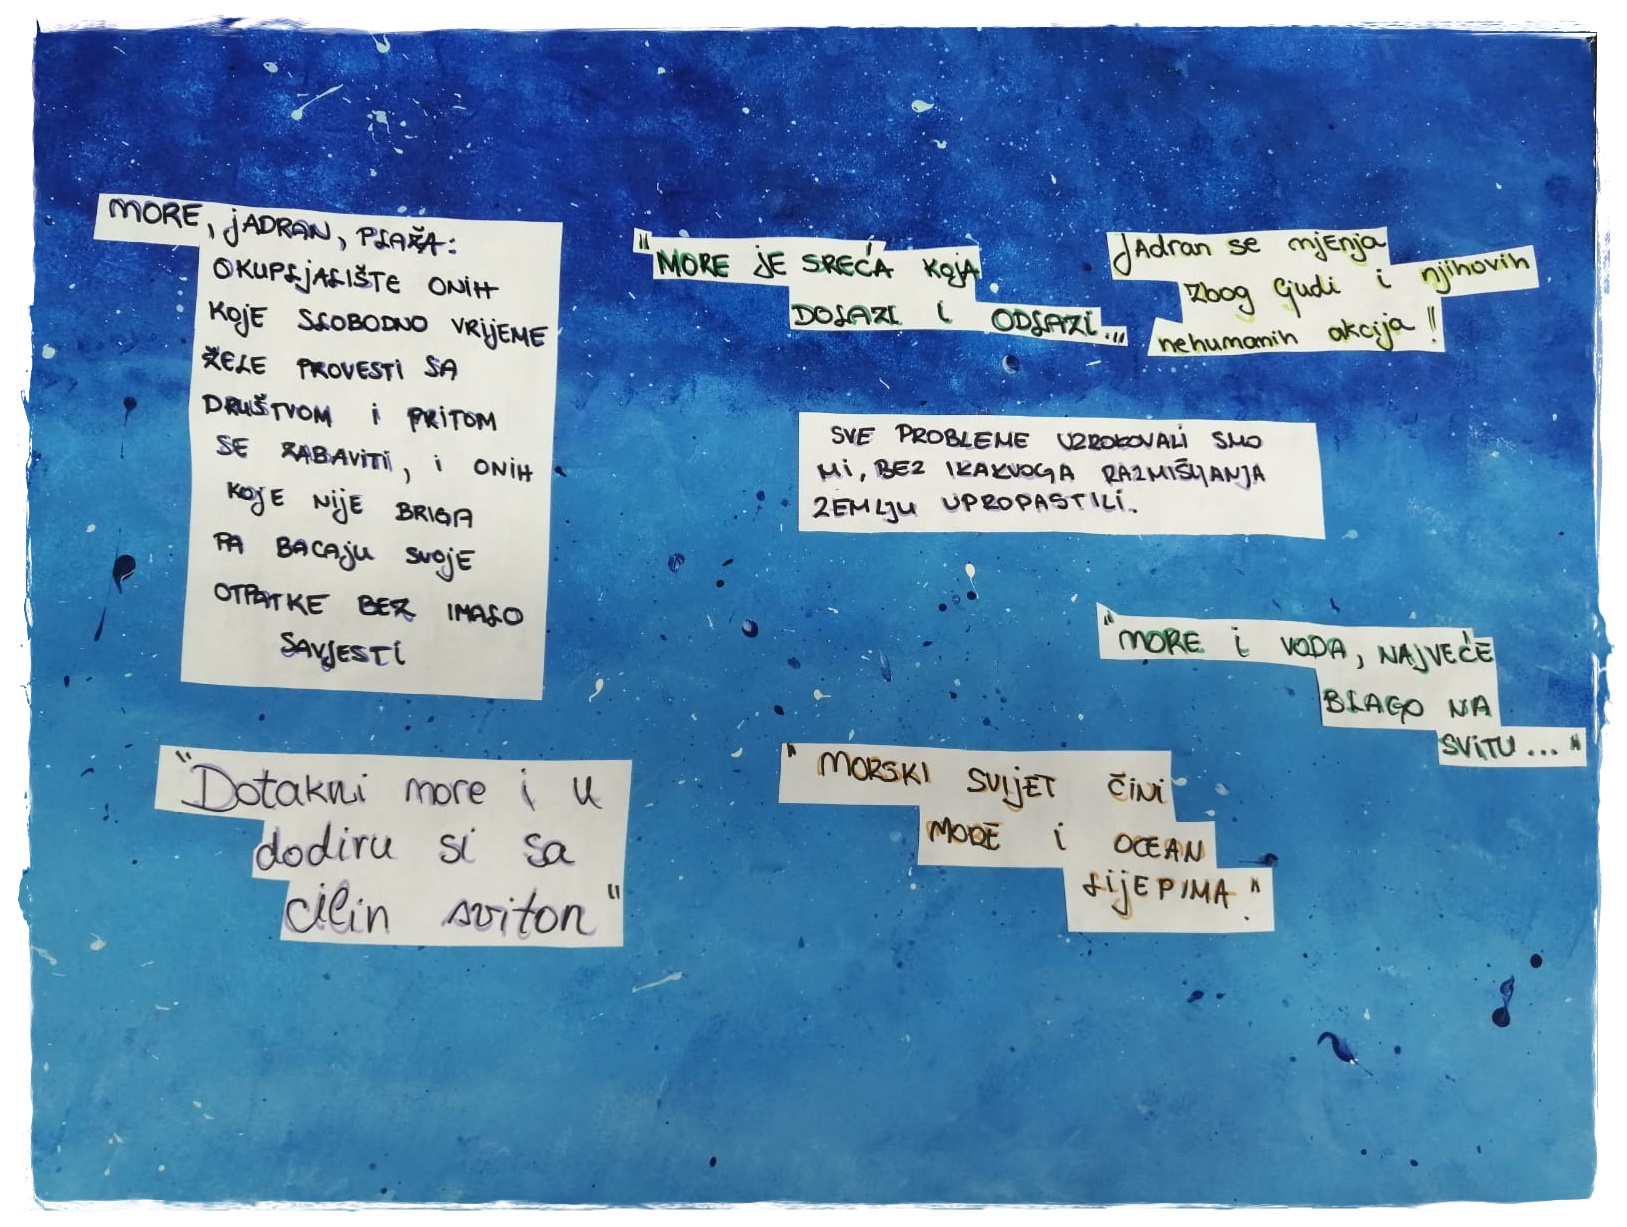 MORE, JADRAN, PLAŽA:
OKUPLJALIŠTE ONIH
KOJE SLOBODNO VRIJEME
ŽELE PROVESTI SA
DRUŠTVOM I PRITOM
SE ZABAVITI, I ONIH
KOJE NIJE BRIGA
PA BACAJU SVOJE
OTPATKE BEZ IMALO
SAVJESTI
"MORE JE SREĆA KOJA
DOLAZI I ODLAZI..."
Jadran se mjenja
zbog ljudi i njihovih
nehumanih akcija!!
SVE PROBLEME UZROKOVALI SMO
MI, BEZ IKAKVOGA RAZMIŠLJANJA
ZEMLJU UPROPASTILI.
"MORE I VODA, NAJVEĆE
BLAGO NA
SVITU..."
"Dotakni more i u
dodiru si sa
cilin sviton"
"MORSKI SVIJET ČINI
MORE I OCEAN
LIJEPIMA."